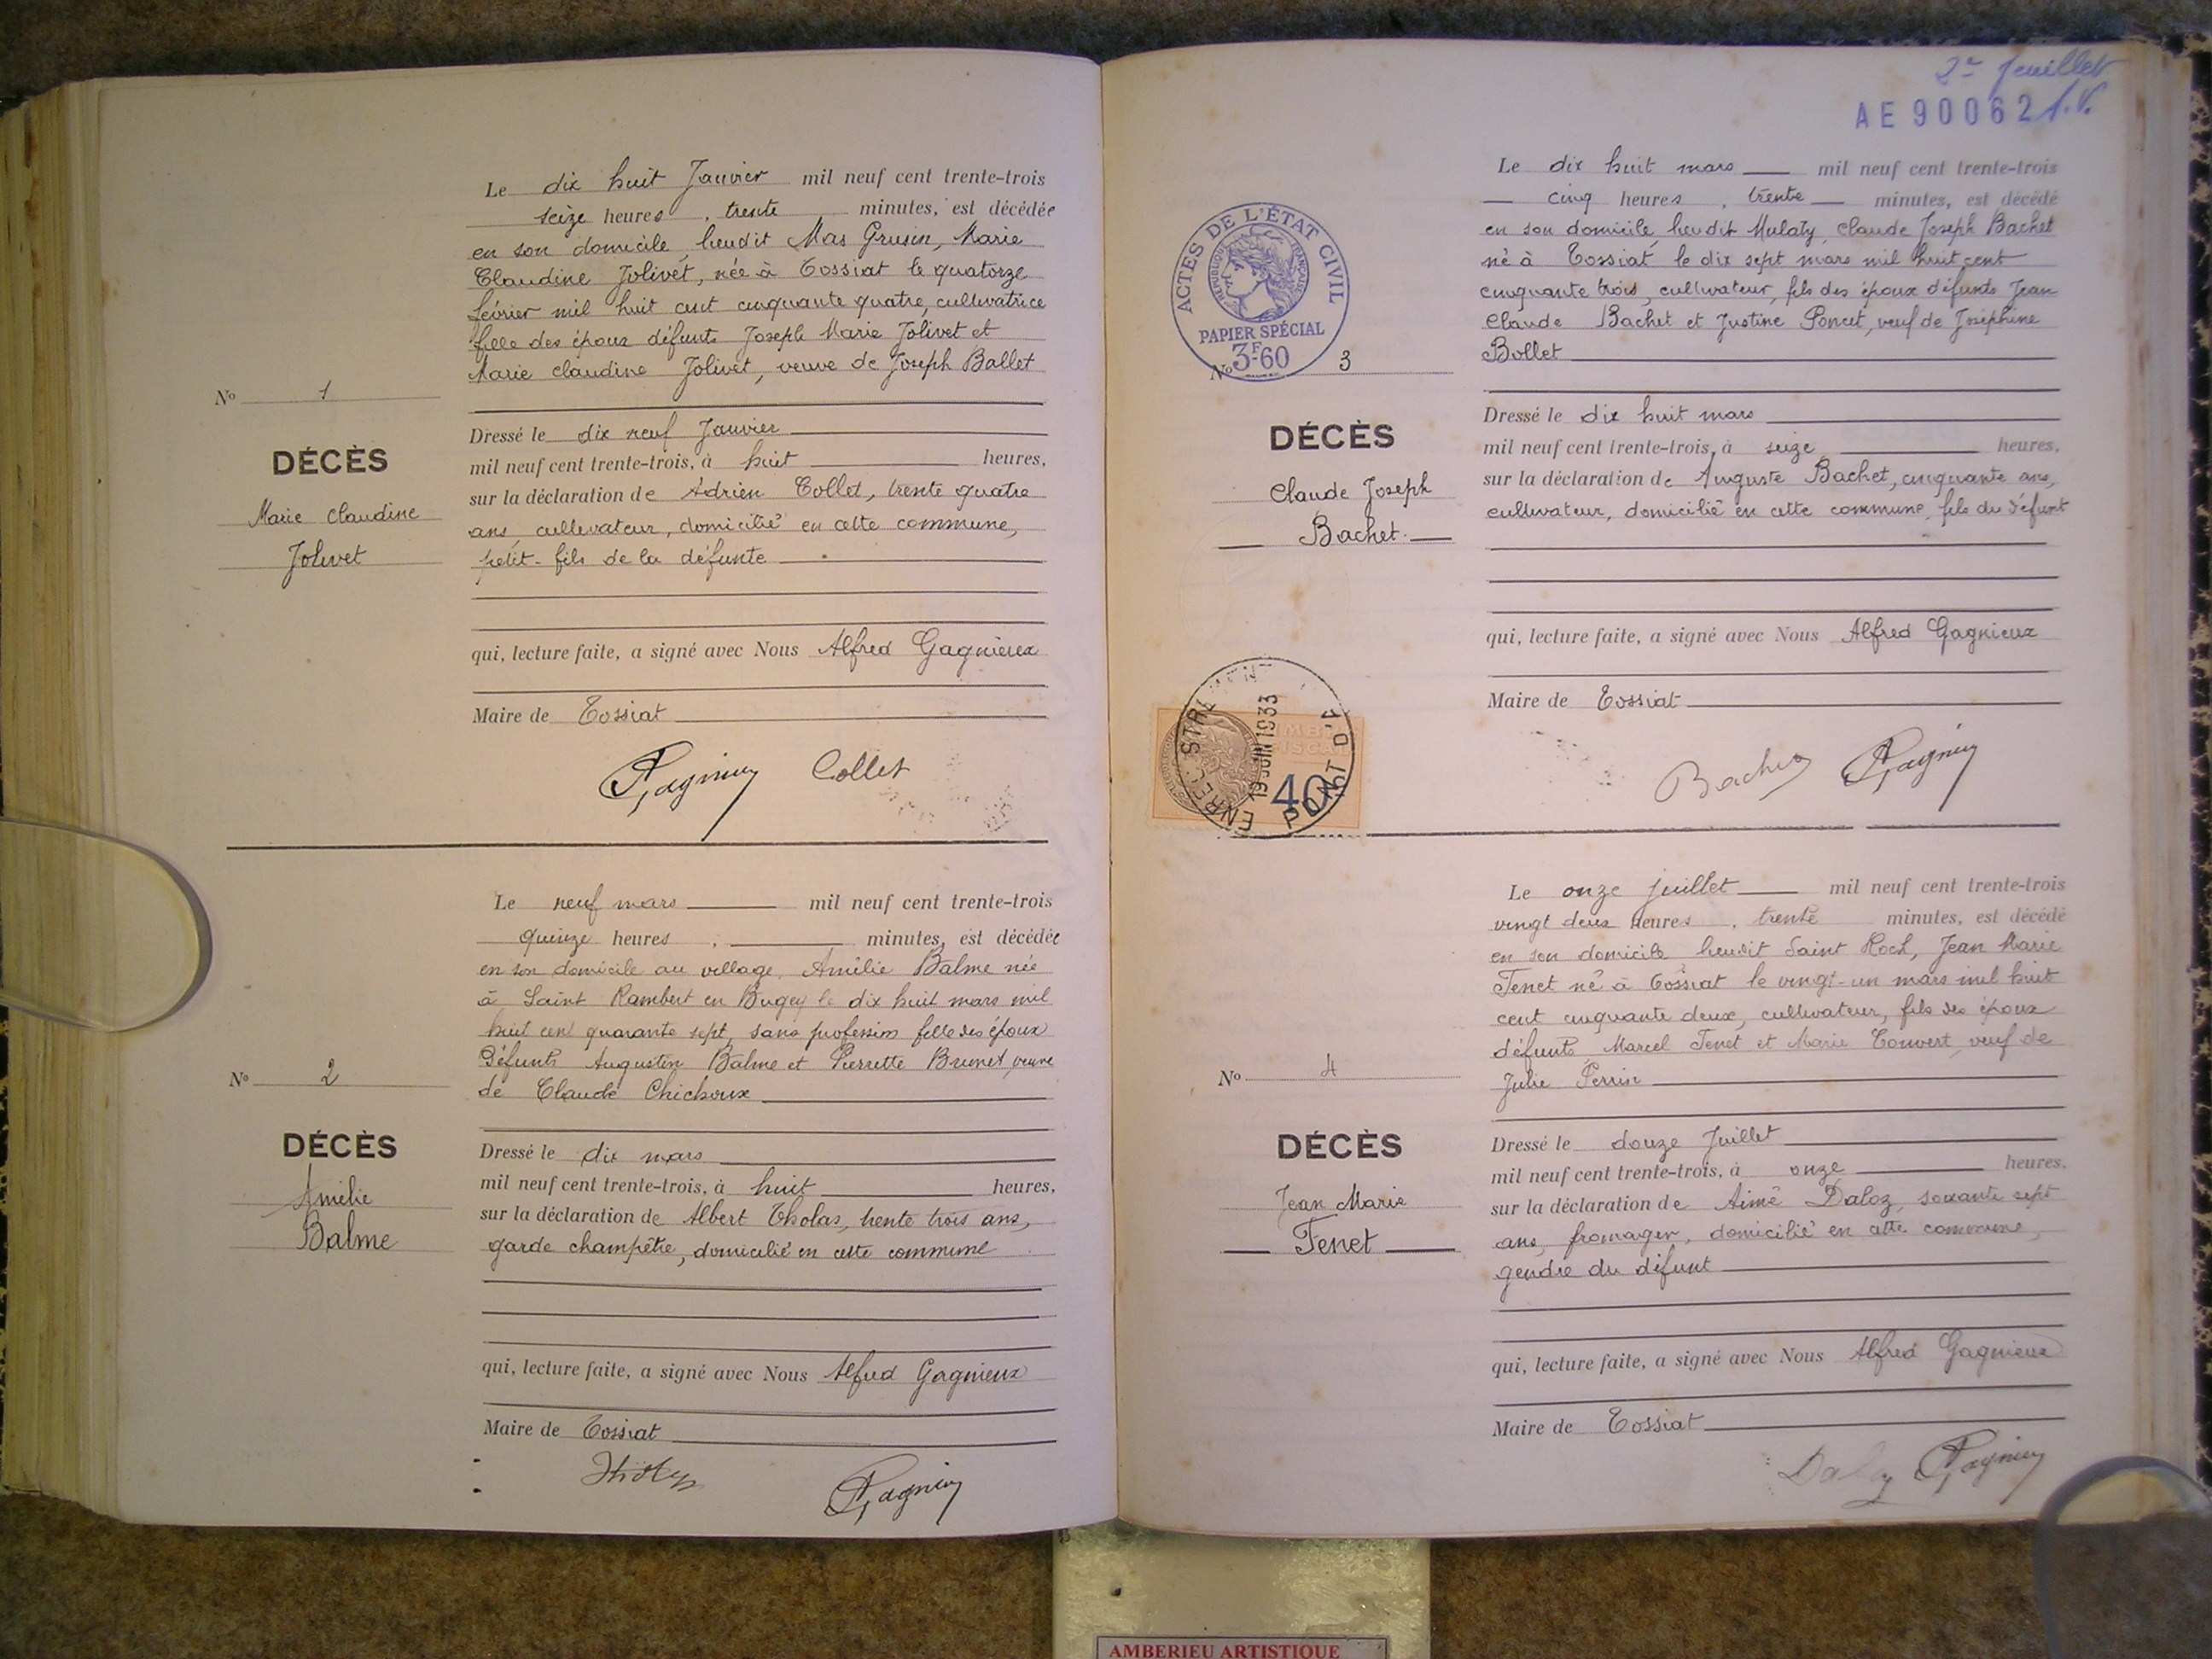 Le dix huit Janvier mil neuf cent trente-trois
seize heures, trente minutes, est décédée
en son domicile, lieudit Mas Grusin, Marie
Claudine Jolivet, née à Tossiat le quatorze
février mil huit cent cinquante quatre, cultivatrice
fille des époux défunts Joseph Marie Jolivet et
Marie Claudine Jolivet, veuve de Joseph Ballet
No 1
DÉCÈS
Marie Claudine
Jolivet
Dressé le dix neuf Janvier
mil neuf cent trente-trois, à huit heures,
sur la déclaration de Adrien Collet, trente quatre
ans, cultivateur, domicilié en cette commune,
petit-fils de la défunte
qui, lecture faite, a signé avec Nous Alfred Gagnieux
Maire de Tossiat
Gagnieux Collet
Le neuf mars mil neuf cent trente-trois
quinze heures, minutes, est décédée
en son domicile au village, Amélie Balme née
à Saint Rambert en Bugey le dix huit mars mil
huit cent quarante sept, sans profession fille des époux
défunts Augustin Balme et Pierrette Brunet, veuve
de Claude Chichoux
No 2
DÉCÈS
Amélie
Balme
Dressé le dix mars
mil neuf cent trente-trois, à huit heures,
sur la déclaration de Albert Tholas, trente trois ans,
garde champêtre, domicilié en cette commune
qui, lecture faite, a signé avec Nous Alfred Gagnieux
Maire de Tossiat
Gagnieux
2e feuillet
AE 90062
ACTES DE L'ÉTAT CIVIL
RÉPUBLIQUE FRANÇAISE
PAPIER SPÉCIAL
3F-60
Le dix huit mars mil neuf cent trente-trois
cinq heures, trente minutes, est décédé
en son domicile, lieudit Mulaty, Claude Joseph Bachet
né à Tossiat le dix sept mars mil huit cent
cinquante trois, cultivateur, fils des époux défunts Jean
Claude Bachet et Justine Poncet, veuf de Joséphine
Bollet
No 3
DÉCÈS
Claude Joseph
Bachet
Dressé le dix huit mars
mil neuf cent trente-trois, à seize heures,
sur la déclaration de Auguste Bachet, cinquante ans,
cultivateur, domicilié en cette commune, fils du défunt
qui, lecture faite, a signé avec Nous Alfred Gagnieux
Maire de Tossiat
Bachet Gagnieux
19 JUIN 1933
40
PONT D'A
Le onze juillet mil neuf cent trente-trois
vingt deux heures, trente minutes, est décédé
en son domicile lieudit Saint Roch, Jean Marie
Tenet né à Tossiat le vingt-un mars mil huit
cent cinquante deux, cultivateur, fils des époux
défunts, Marcel Tenet et Marie Convert, veuf de
Julie Perrin
No 4
DÉCÈS
Jean Marie
Tenet
Dressé le douze Juillet
mil neuf cent trente-trois, à onze heures,
sur la déclaration de Aimé Daloz, soixante sept
ans, fromager, domicilié en cette commune,
gendre du défunt
qui, lecture faite, a signé avec Nous Alfred Gagnieux
Maire de Tossiat
Daloz Gagnieux
AMBERIEU ARTISTIQUE